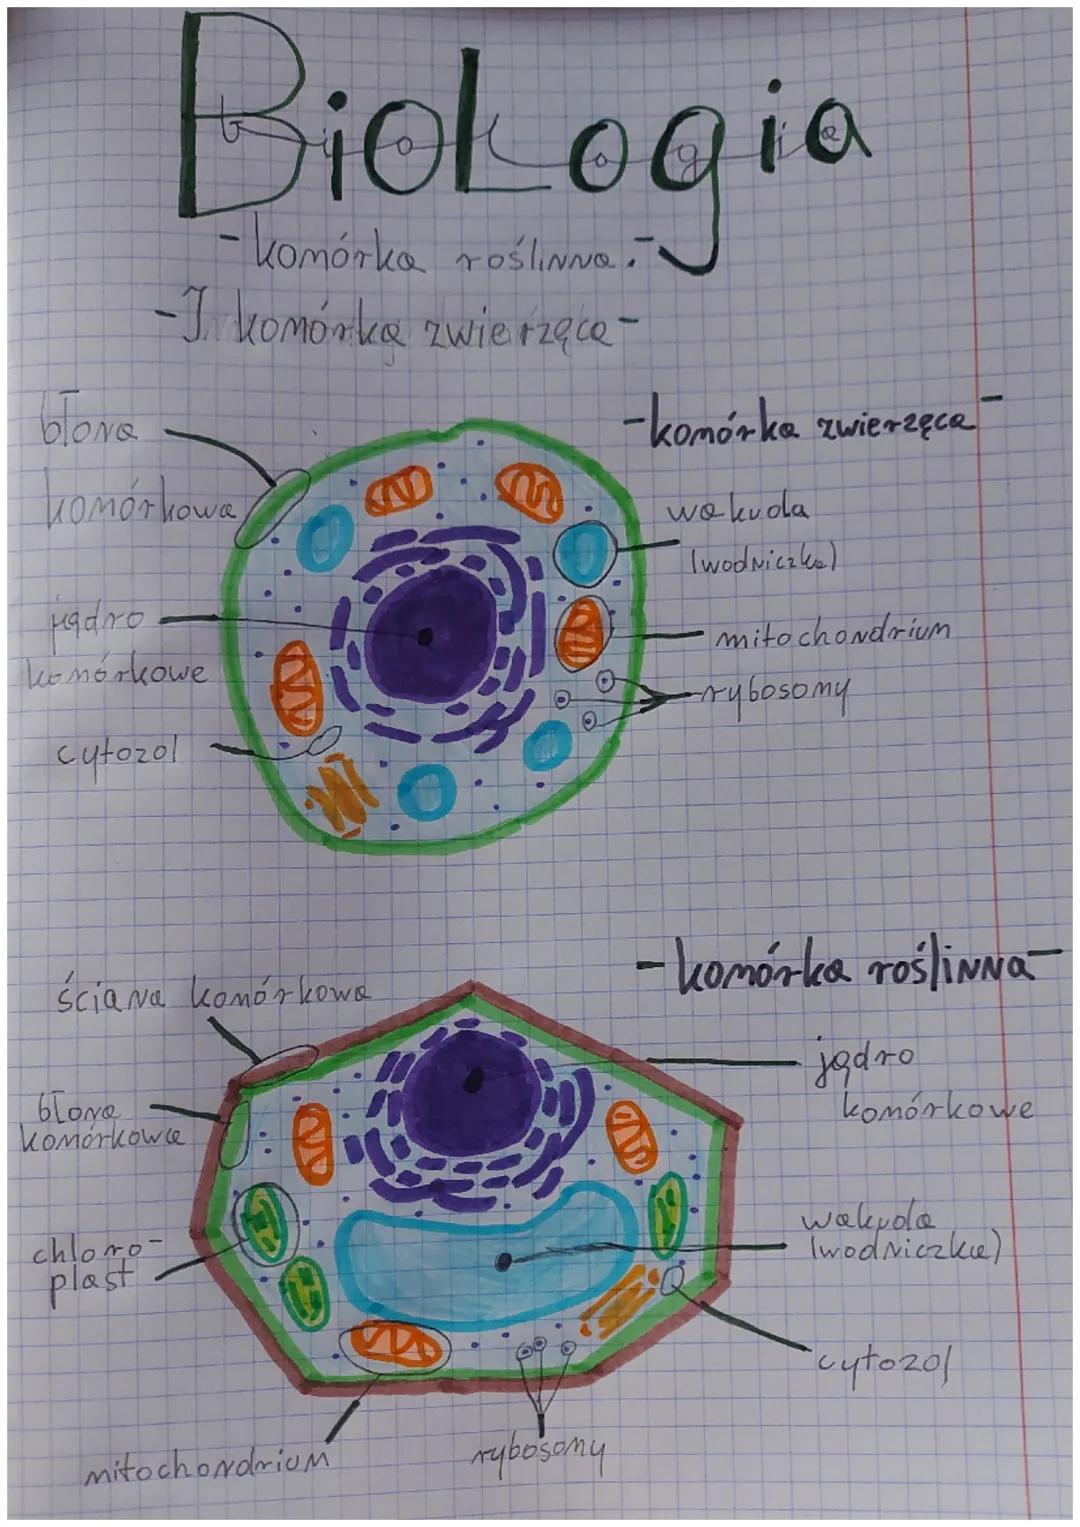 Biologia
-komórka roślinna.-
-I komórka zwierzęca-
-komórka zwierzęca-
błona
komórkowa
wakuola
(wodniczka)
jądro
komórkowe
mitochondrium
rybosomy
cytozol
-komórka roślinna-
ściana komórkowa
jądro
komórkowe
błona
komórkowa
wakuola
(wodniczka)
chloro-
plast
cytozol
rybosomy
mitochondrium